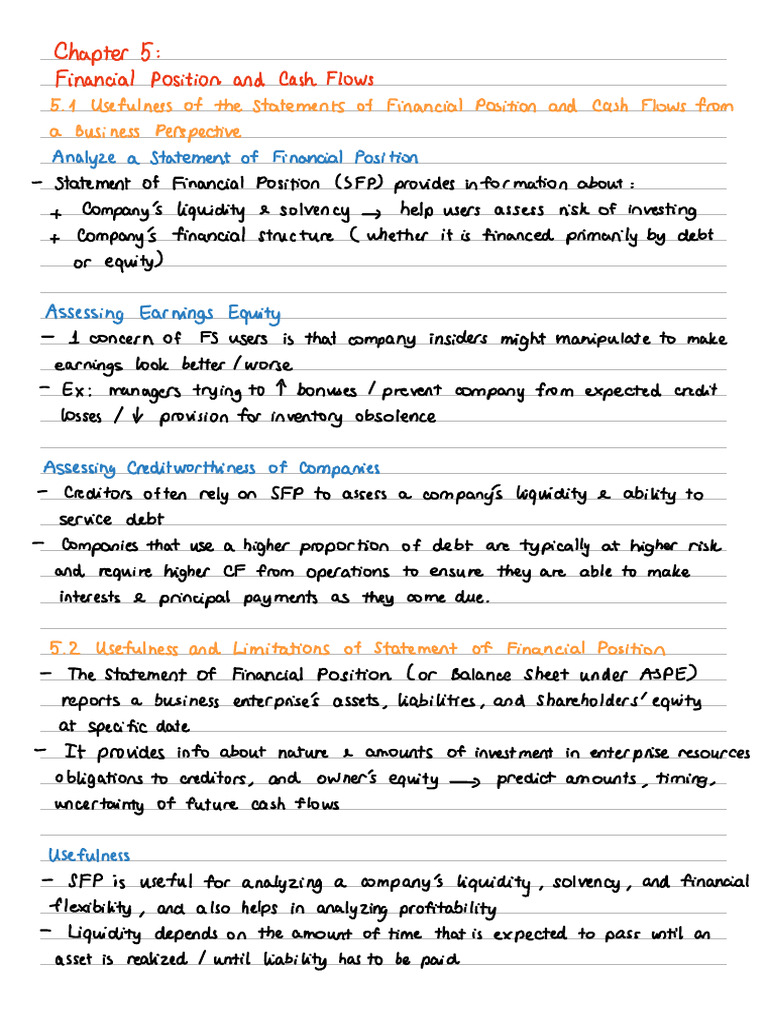 Chapter 5:
Financial Position and Cash Flows
5.1 Usefulness of the Statements of Financial Position and Cash Flows from
a Business Perspective
Analyze a Statement of Financial Position
- Statement of Financial Position (SFP) provides information about:
+ Company's liquidity & solvency → help users assess risk of investing
+ Company's financial structure (whether it is financed primarily by debt
or equity)
Assessing Earnings Equity
- 1 concern of FS users is that company insiders might manipulate to make
earnings look better/worse
- Ex: managers trying to ↑ bonuses / prevent company from expected credit
losses / ↓ provision for inventory obsolence
Assessing Creditworthiness of Companies
- Creditors often rely on SFP to assess a company's liquidity & ability to
service debt
- Companies that use a higher proportion of debt are typically at higher risk
and require higher CF from operations to ensure they are able to make
interests & principal payments as they come due.
5.2 Usefulness and Limitations of Statement of Financial Position
- The Statement of Financial Position (or Balance Sheet under ASPE)
reports a business enterprise's assets, liabilities, and shareholders' equity
at specific date
- It provides info about nature & amounts of investment in enterprise resources
obligations to creditors, and owner's equity → predict amounts, timing,
uncertainty of future cash flows
Usefulness
- SFP is useful for analyzing a company's liquidity, solvency, and financial
flexibility, and also helps in analyzing profitability
- Liquidity depends on the amount of time that is expected to pass until an
asset is realized / until liability has to be paid